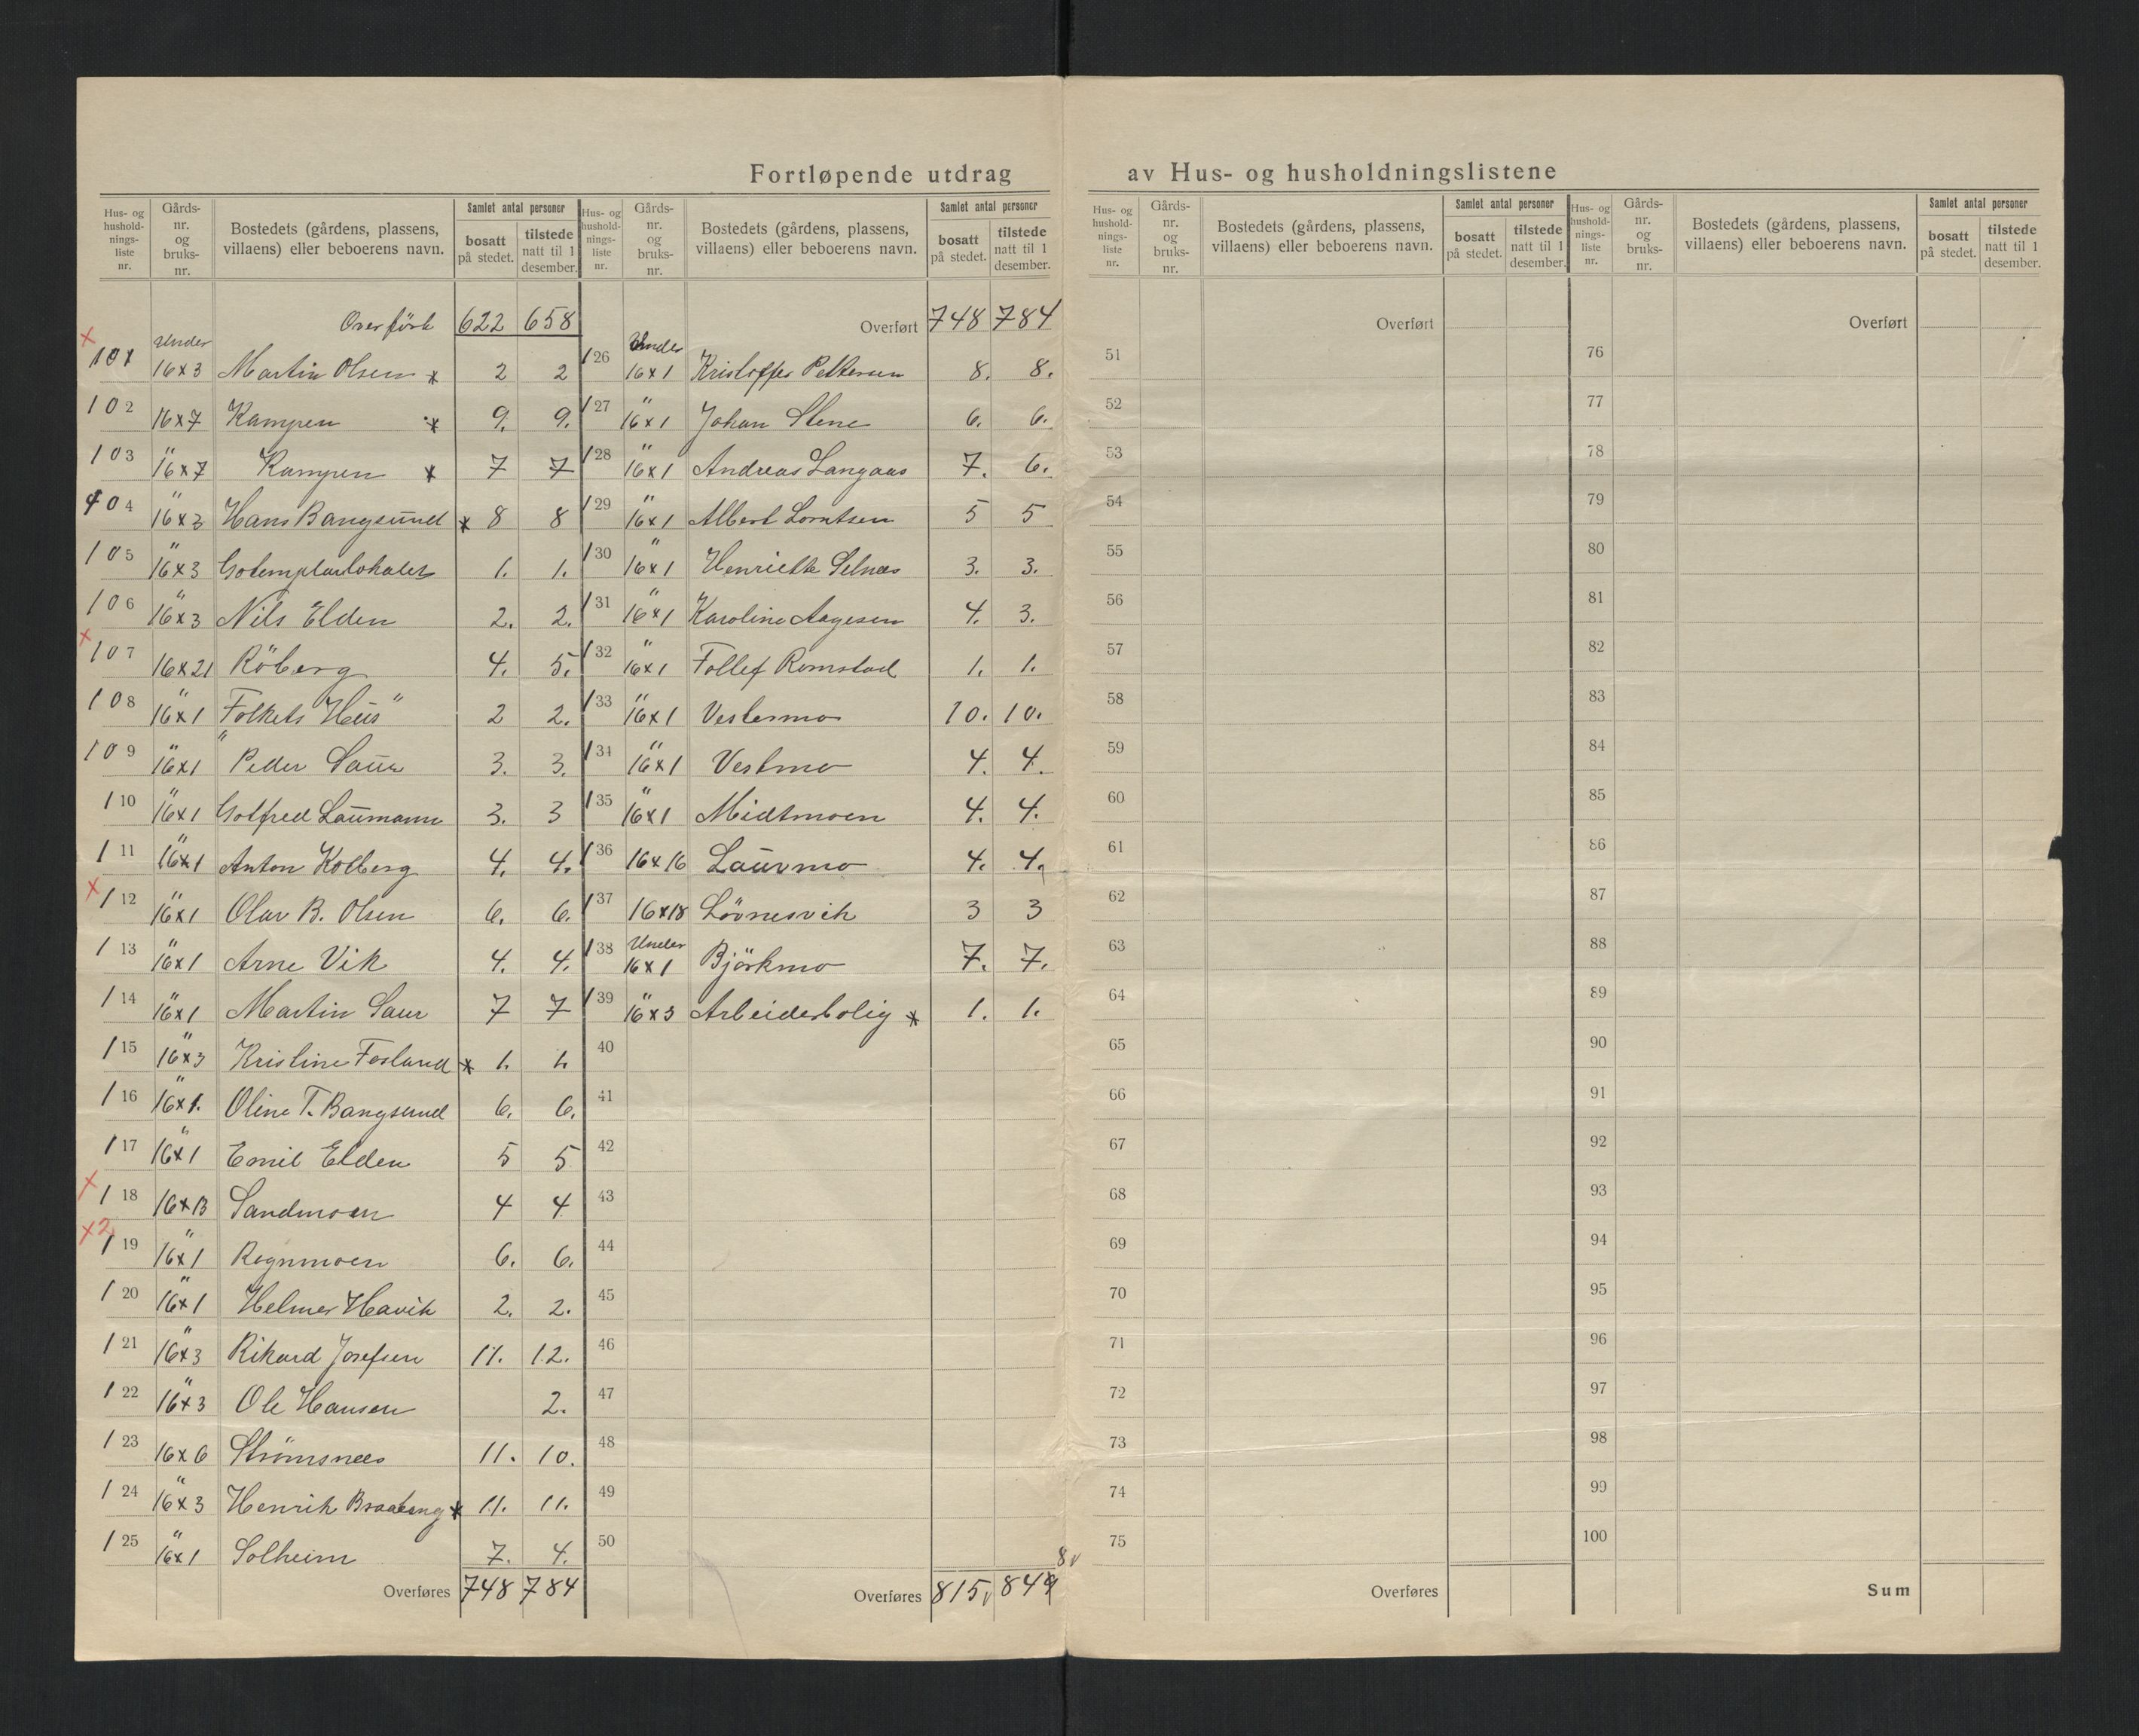 Fortløpende utdrag av Hus- og husholdningslistene
Hus- og hushold- nings- liste nr. Gårds- nr. og bruks- nr. Bostedets (gårdens, plassens, villaens) eller beboerens navn. Samlet antal personer bosatt på stedet. tilstede natt til 1 desember.
Overført 622 658
101 Under 16x3 Martin Olsen x 2 2
102 16x7 Kampen x 9. 9.
103 " 16x7 Kampen x 7 7
104 " 16x3 Hans Bangsund x 8 8
105 " 16x3 Gotemplarlokalet 1. 1.
106 " 16x3 Nils Elden 2. 2.
107 16x21 Röberg 4. 5.
108 " 16x1 "Folkets Hus" 2 2.
109 " 16x1 Peder Saur 3. 3.
110 " 16x1 Gotfred Laumann 3. 3
111 " 16x1 Anton Kolberg 4. 4.
112 " 16x1 Olav B. Olsen 6. 6.
113 " 16x1 Arne Vik 4. 4.
114 " 16x1 Martin Saur 7 7
115 " 16x3 Kristine Fosland x 1. 1.
116 " 16x1. Oline T. Bangsund 6. 6.
117 " 16x1 Emil Elden 5 5
118 16x13 Sandmoen 4 4
119 " 16x1 Rognmoen 6. 6.
120 " 16x1 Helmer Havik 2. 2.
121 " 16x3 Rikard Josefsen 11. 12.
122 " 16x3 Ole Hansen 2.
123 16x6 Strömsnes 11. 10.
124 " 16x3 Henrik Braateng x 11. 11.
125 " 16x1 Solheim 7. 4.
Overføres 748 784
Hus- og hushold- nings- liste nr. Gårds- nr. og bruks- nr. Bostedets (gårdens, plassens, villaens) eller beboerens navn. Samlet antal personer bosatt på stedet. tilstede natt til 1 desember.
Overført 748 784
126 Under 16x1 Kristoffer Pettersen 8. 8.
127 " 16x1 Johan Stene 6. 6.
128 " 16x1 Andreas Langaas 7. 6.
129 " 16x1 Albert Lorntsen 5 5
130 " 16x1 Henriette Selnes 3. 3.
131 " 16x1 Karoline Aagesen 4. 3.
132 " 16x1 Tollef Romstad 1. 1.
133 " 16x1 Vestermo 10. 10.
134 " 16x1 Vestmo 4. 4.
135 " 16x1 Midtmoen 4. 4.
136 16x16 Laurmo 4. 4.
137 16x18 Lövnesvik 3 3
138 Under 16x1 Björkmo 7. 7.
139 " 16x3 Arbeiderbolig x 1. 1.
40
41
42
43
44
45
46
47
48
49
50
Overføres 815 849
8
Hus- og hushold- nings- liste nr. Gårds- nr. og bruks- nr. Bostedets (gårdens, plassens, villaens) eller beboerens navn. Samlet antal personer bosatt på stedet. tilstede natt til 1 desember.
Overført
51
52
53
54
55
56
57
58
59
60
61
62
63
64
65
66
67
68
69
70
71
72
73
74
75
Overføres
Hus- og hushold- nings- liste nr. Gårds- nr. og bruks- nr. Bostedets (gårdens, plassens, villaens) eller beboerens navn. Samlet antal personer bosatt på stedet. tilstede natt til 1 desember.
Overført
76
77
78
79
80
81
82
83
84
85
86
87
88
89
90
91
92
93
94
95
96
97
98
99
100
Sum